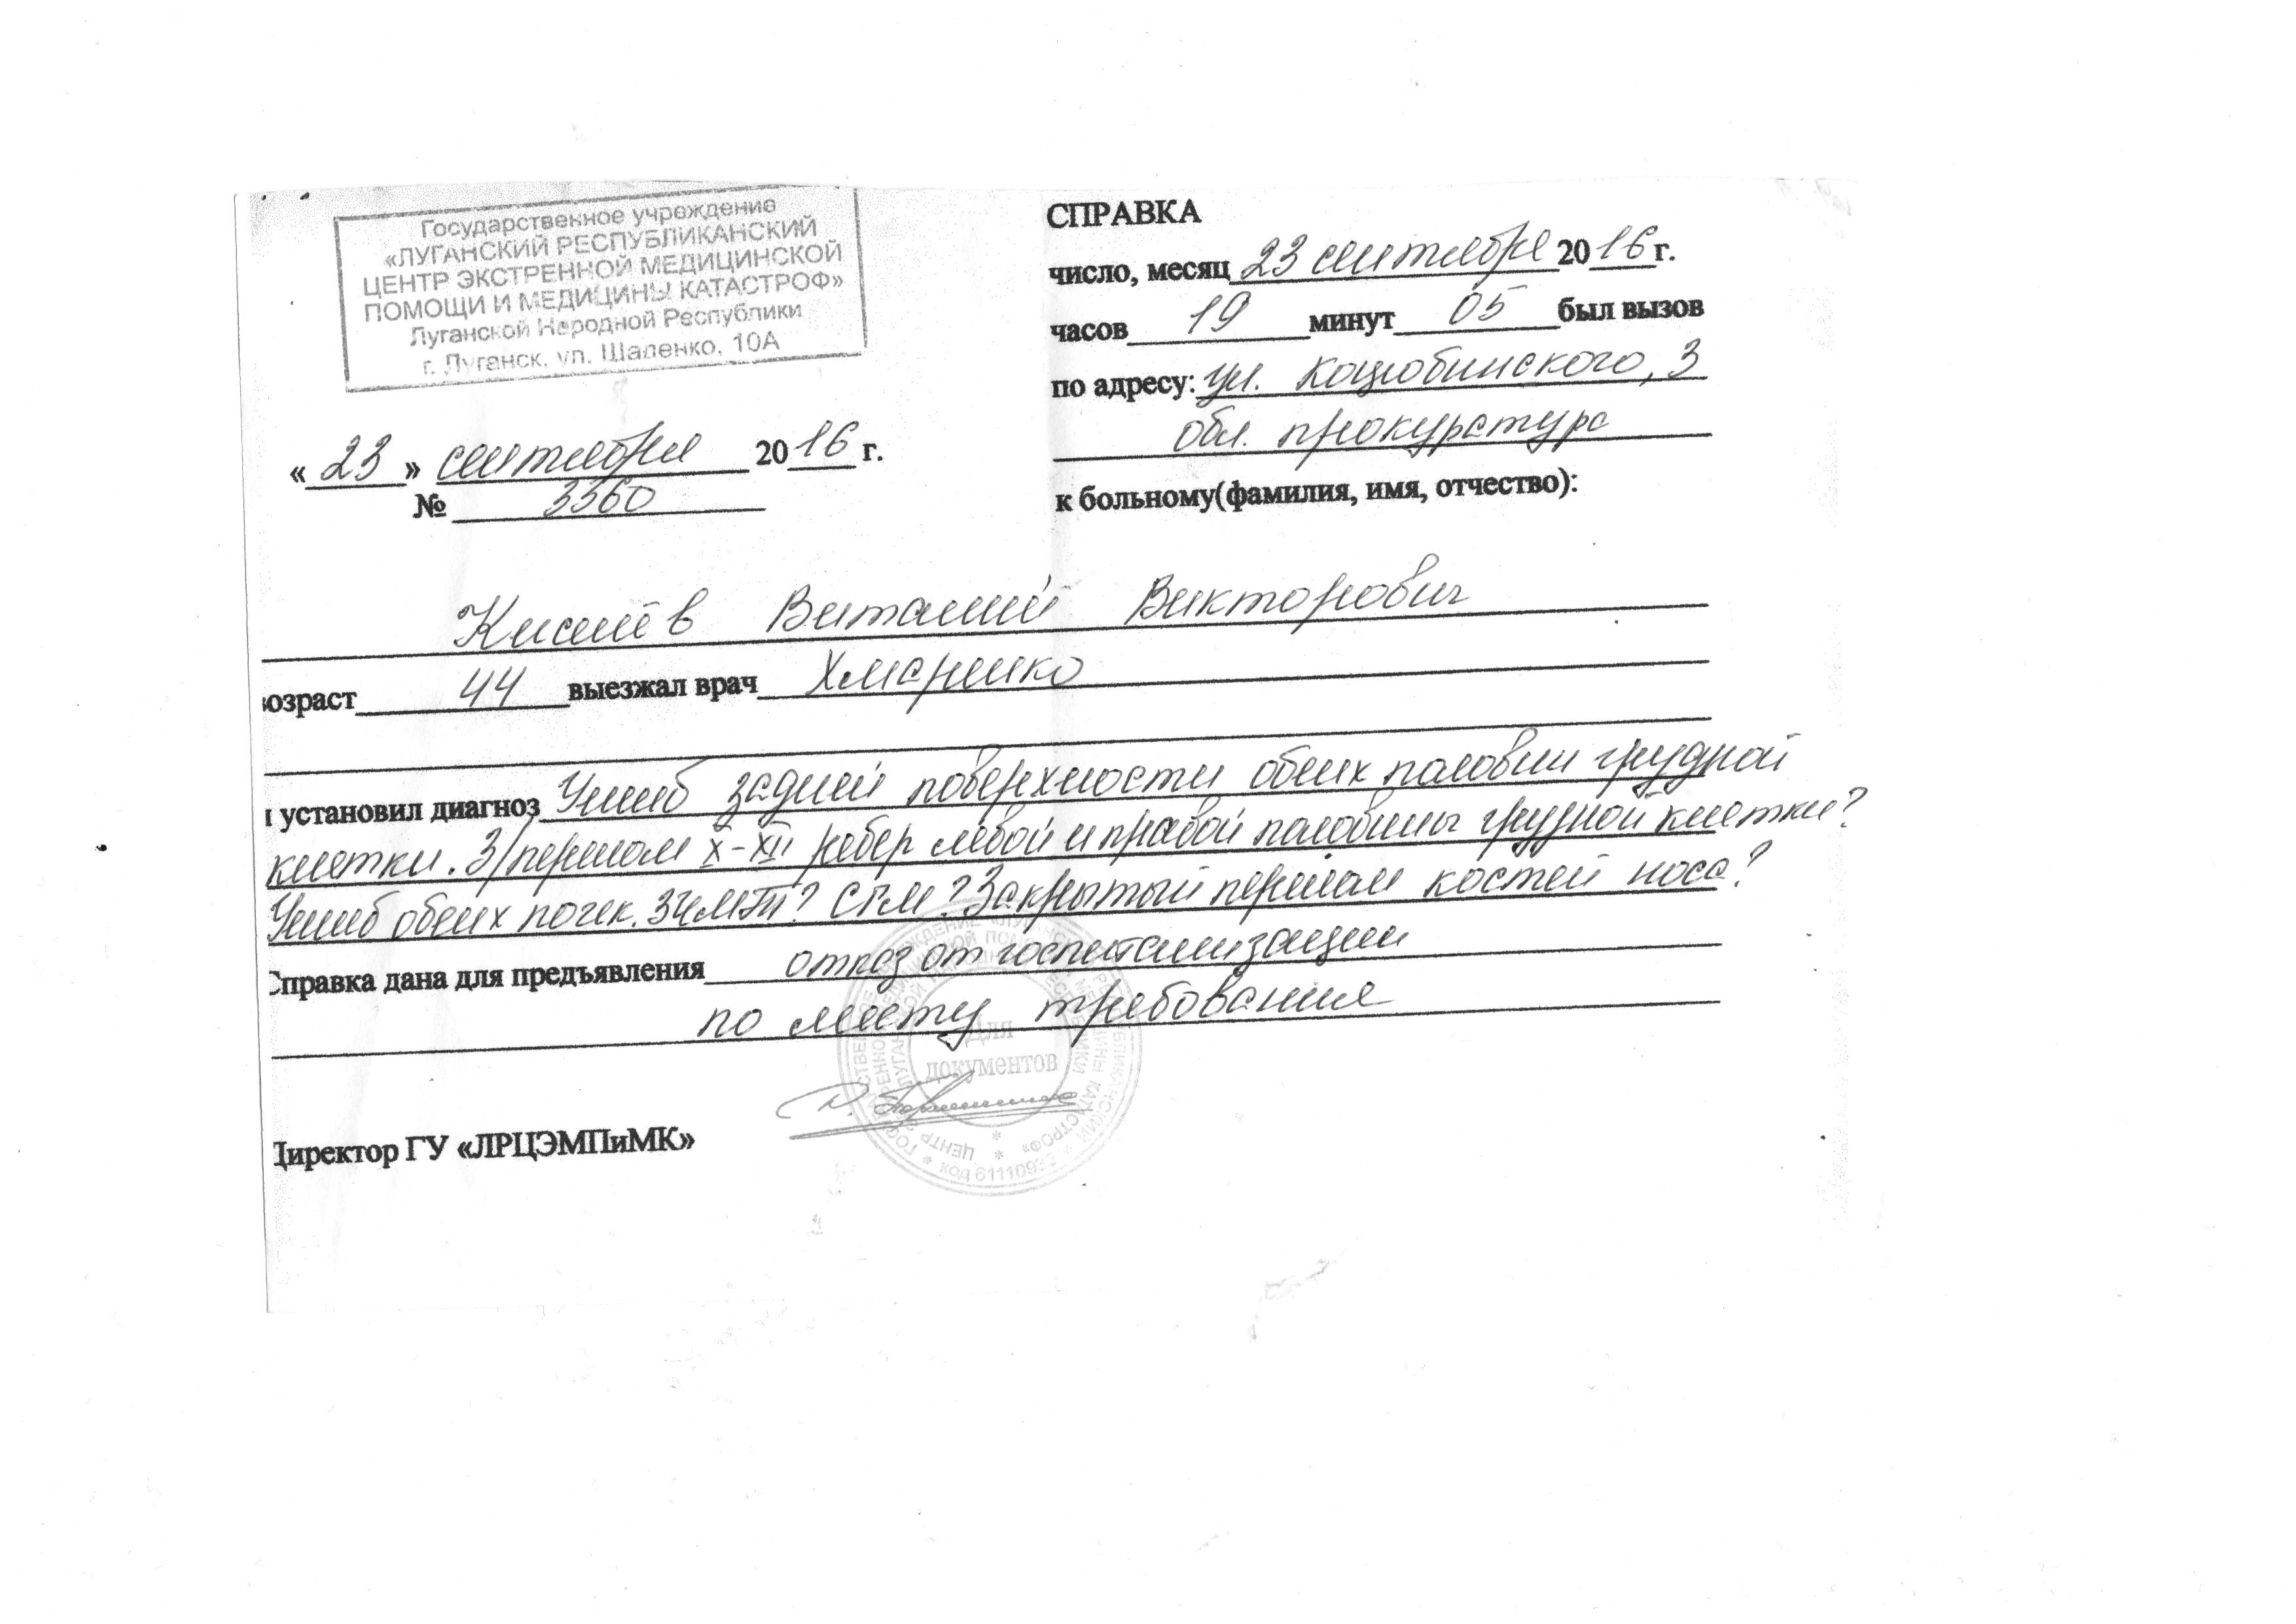 Государственное учреждение
«ЛУГАНСКИЙ РЕСПУБЛИКАНСКИЙ
ЦЕНТР ЭКСТРЕННОЙ МЕДИЦИНСКОЙ
ПОМОЩИ И МЕДИЦИНЫ КАТАСТРОФ»
Луганской Народной Республики
г. Луганск, ул. Шаленко, 10А
«23» сентября 2016 г.
№ 3360
СПРАВКА
число, месяц 23 сентября 2016 г.
часов 19 минут 05 был вызов
по адресу: ул. Коцюбинского, 3
обл. прокуратура
к больному(фамилия, имя, отчество):
Киселёв Виталий Викторович
возраст 44 выезжал врач Хмаренко
и установил диагноз Ушиб задней поверхности обеих половин грудной
клетки. З/перелом X-XII ребер левой и правой половины грудной клетки?
Ушиб обеих почек. ЗЧМТ? СГМ? Закрытый перелом костей носа?
Справка дана для предъявления отказ от госпитализации
по месту требования
Для
документов
код 6111093
Директор ГУ «ЛРЦЭМПиМК»